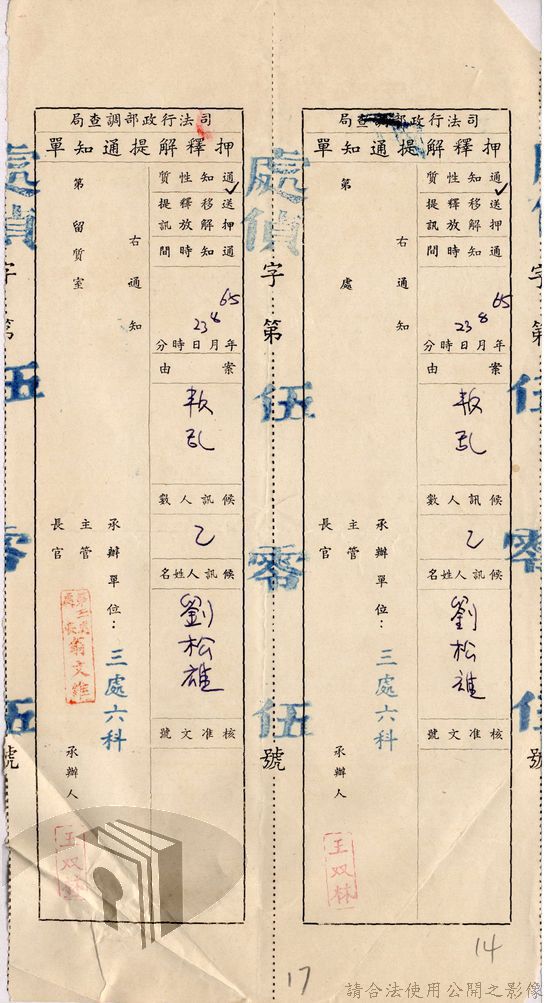 司法行政部調查局
押釋解提通知單
通知性質
送押 移解 釋放 提訊
通知時間
65年8月23日時分
案由
叛乱
候訊人數
乙
候訊人姓名
劉松雄
核准文號
右通知
第 處
承辦單位：三處六科
主管
長官
承辦人
王双林
處偵字第伍零伍號
司法行政部調查局
押釋解提通知單
通知性質
送押 移解 釋放 提訊
通知時間
65年8月23日時分
案由
叛乱
候訊人數
乙
候訊人姓名
劉松雄
核准文號
右通知
第 留質室
承辦單位：三處六科
主管
長官
翁文維
承辦人
王双林
處偵字第伍零伍號
14
17
請合法使用公開之影像